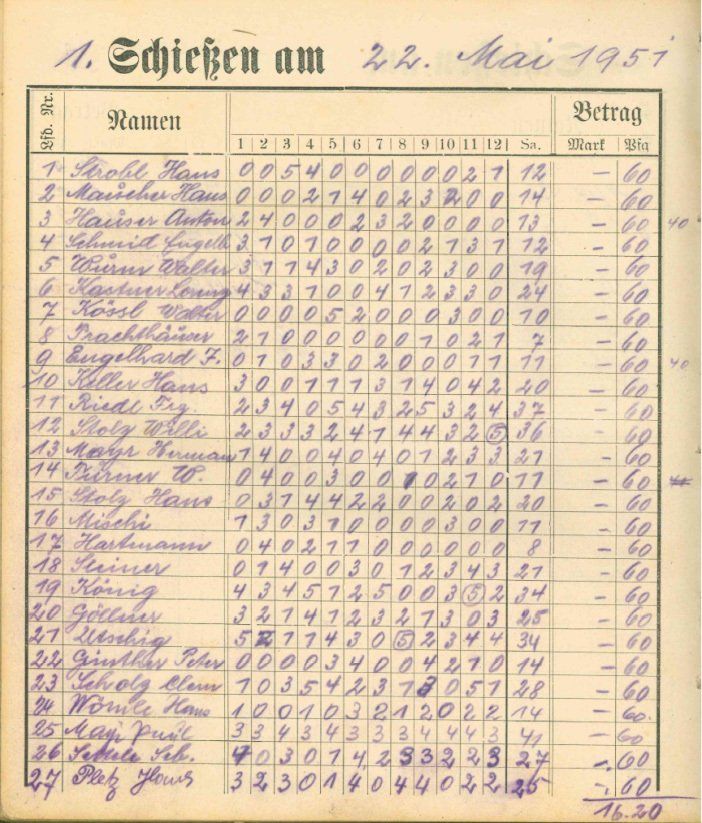 1. Schießen am 22. Mai 1951
Lfd. Nr. Namen Betrag
1 2 3 4 5 6 7 8 9 10 11 12 Sa. Mark Pfg
1 Strobl Hans 0 0 5 4 0 0 0 0 0 0 2 1 12 – 60
2 Mauscher Hans 0 0 0 2 1 4 0 2 3 2 0 0 14 – 60
3 Hauser Anton 2 4 0 0 0 2 3 2 0 0 0 0 13 – 60 40
4 Schmid 3 1 0 1 0 0 0 0 2 1 3 1 12 – 60
5 Wurm Walter 3 1 1 4 3 0 2 0 2 3 0 0 19 – 60
6 Kastner 4 3 3 1 0 0 4 1 2 3 3 0 24 – 60
7 Kössl Walter 0 0 0 0 5 2 0 0 0 3 0 0 10 – 60
8 Prachthäuser 2 1 0 0 0 0 0 0 1 0 2 1 7 – 60
9 Engelhard F. 0 1 0 3 3 0 2 0 0 0 1 1 11 – 60 40
10 Keller Hans 3 0 0 1 1 1 3 1 4 0 4 2 20 – 60
11 Riedl Frz. 2 3 4 0 5 4 3 2 5 3 2 4 37 – 60
12 Stolz Willi 2 3 3 3 2 4 1 4 4 3 2 5 36 – 60
13 Mayr Hermann 1 4 0 0 4 0 4 0 1 2 3 3 21 – 60
14 Türner W. 0 4 0 0 3 0 0 1 0 2 1 0 11 – 60
15 Stolz Hans 0 3 1 4 4 2 2 0 0 2 0 2 20 – 60
16 Mischi 1 3 0 3 1 0 0 0 0 3 0 0 11 – 60
17 Hartmann 0 4 0 2 1 1 0 0 0 0 0 0 8 – 60
18 Steiner 0 1 4 0 0 3 0 1 2 3 4 3 21 – 60
19 König 4 3 4 5 1 2 5 0 0 3 5 2 34 – 60
20 Göllner 3 2 1 4 1 2 3 2 1 3 0 3 25 – 60
21 Utschig 5 2 1 1 4 3 0 5 2 3 4 4 34 – 60
22 Günther Peter 0 0 0 0 3 4 0 0 4 2 1 0 14 – 60
23 Scholz Clem 1 0 3 5 4 2 3 1 3 0 5 1 28 – 60
24 Wörnle Hans 1 0 0 1 0 3 2 1 2 0 2 2 14 – 60.
25 Mayr Paul 3 3 4 3 4 3 3 4 4 4 3 41 – 60
26 Seb. 4 0 3 0 1 4 2 3 3 2 2 3 27 –. 60
27 Pletz Hans 3 2 3 0 1 4 0 4 4 0 2 2 25 –. 60
16.20